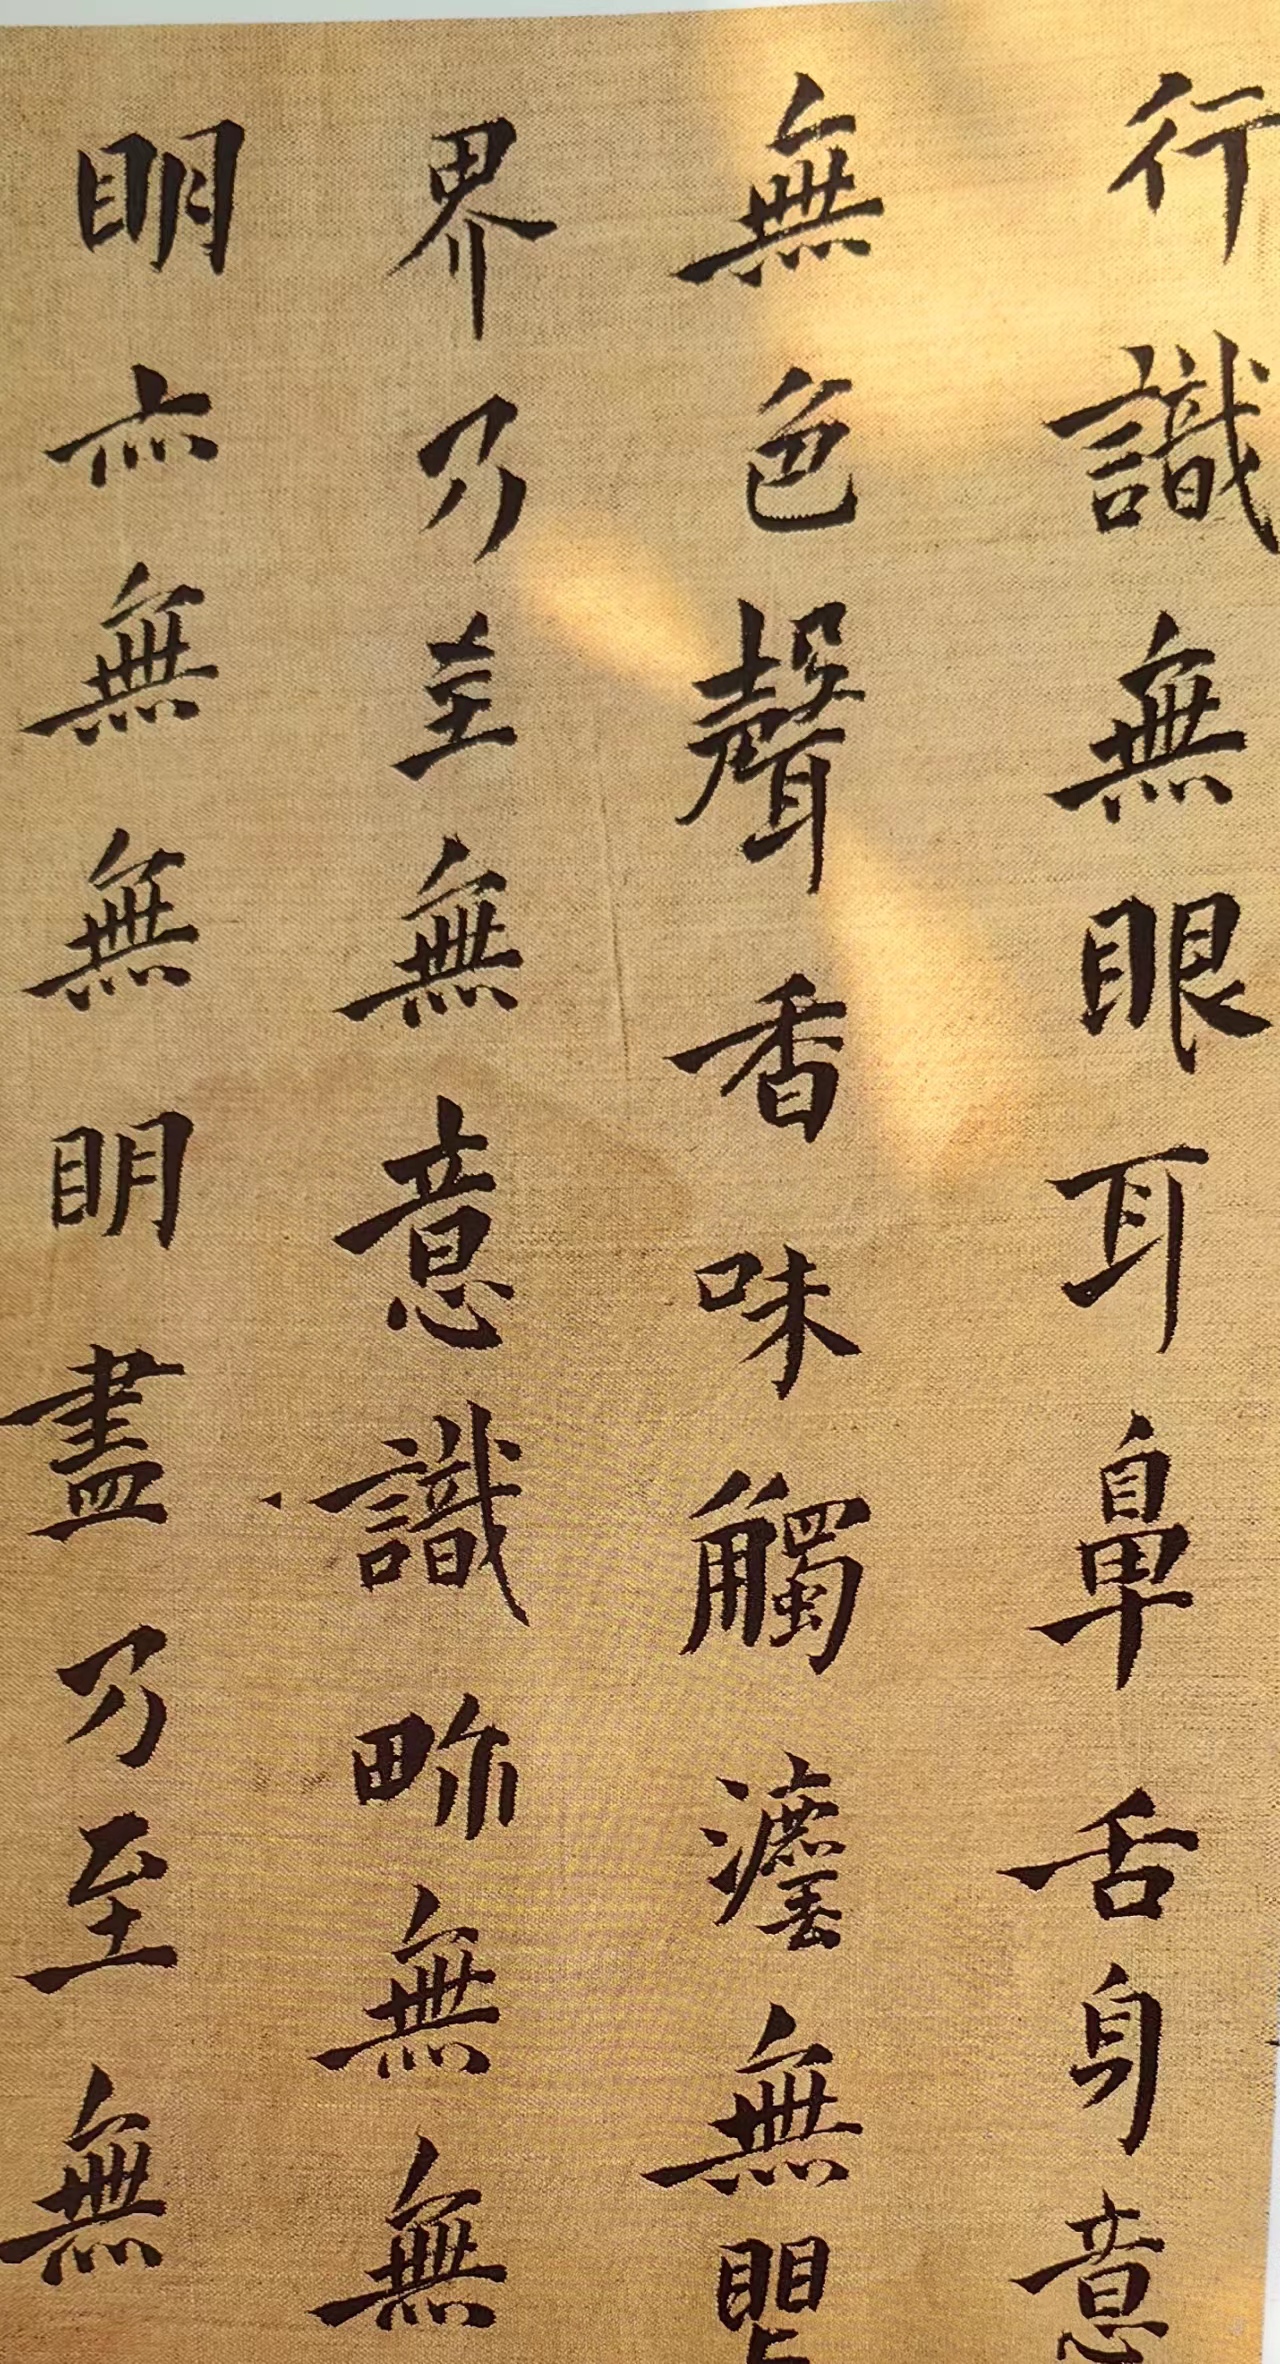 行識無眼耳鼻舌身意
無色聲香味觸灋無
界乃至無意識畍無無
眀亦無無眀盡乃至無